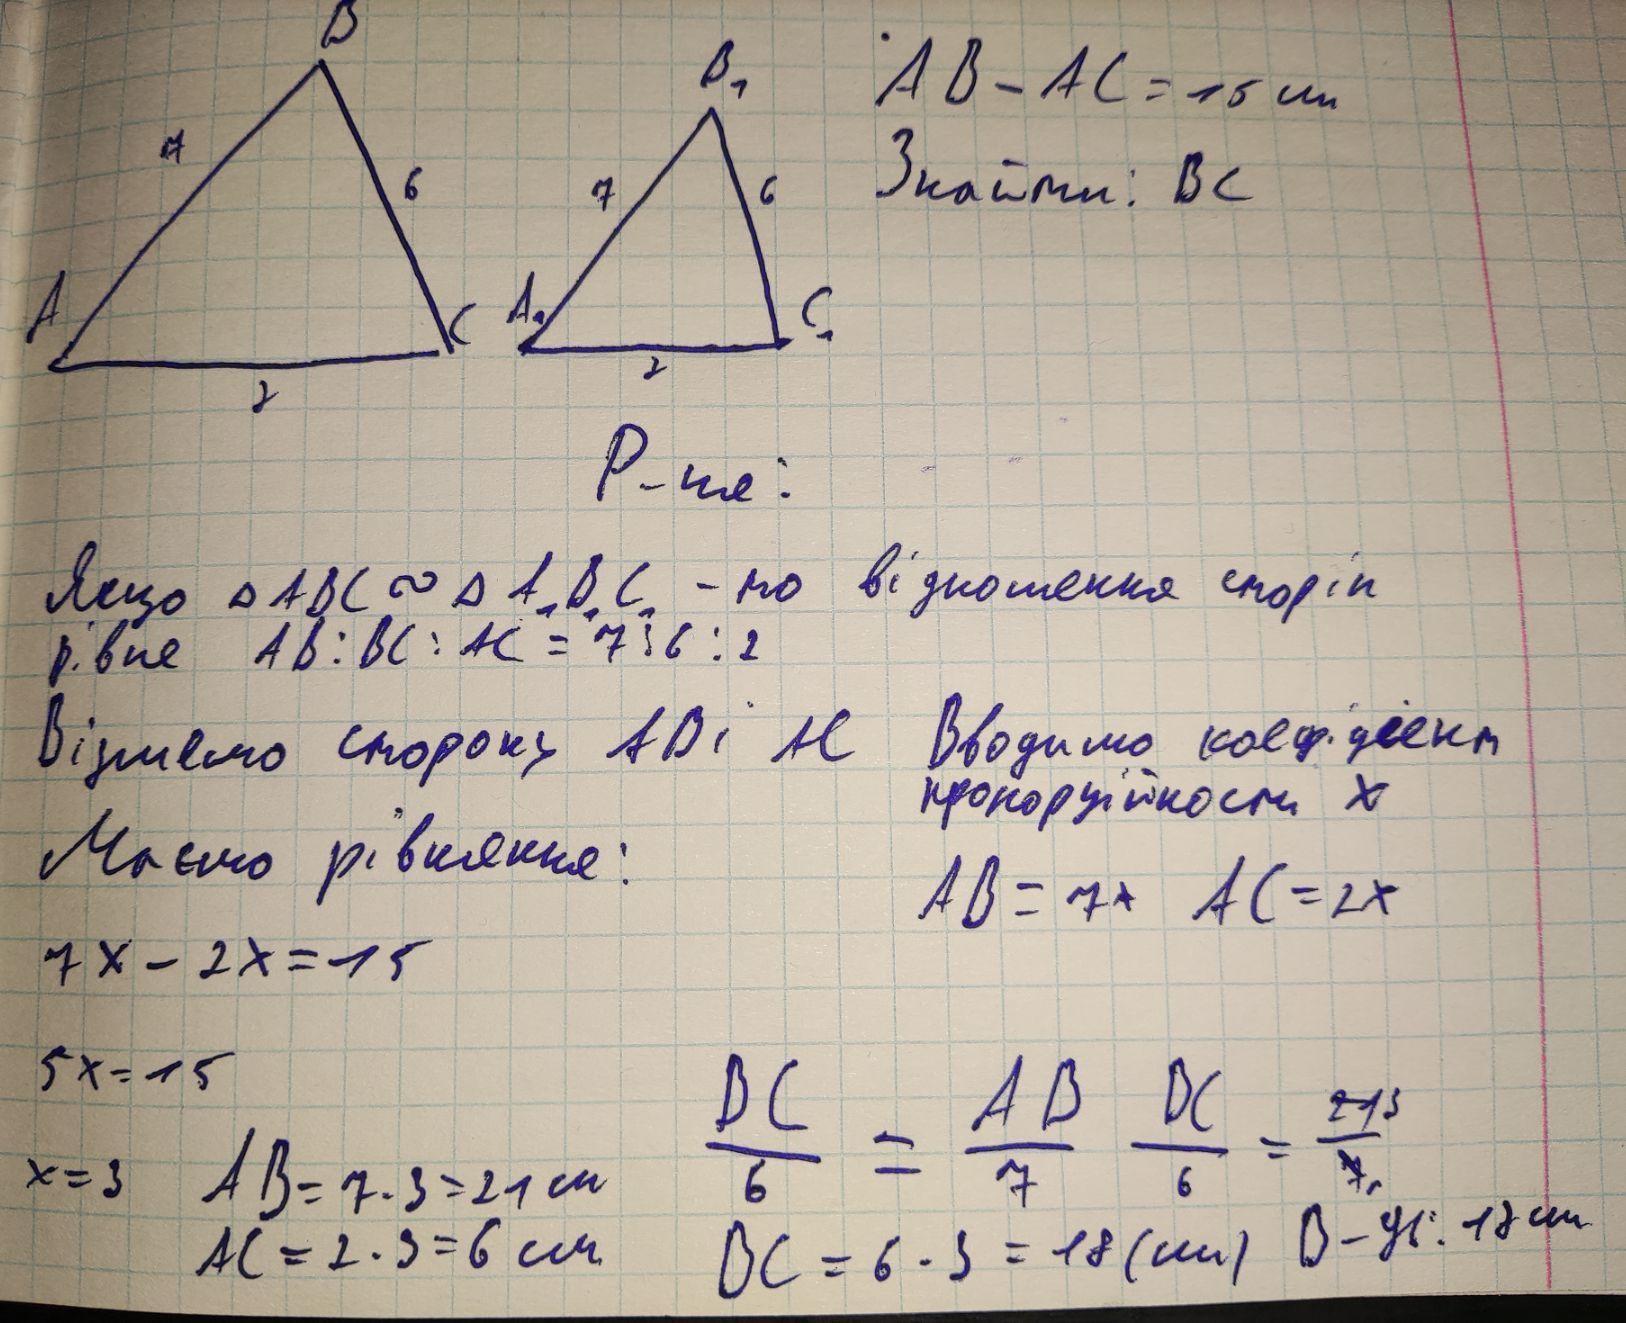 B
B₁
AB - AC = 15 см
7
6
7
6
Знайти: BC
A
C
A₁
C₁
2
2
Р-ня:
Якщо △ABC ∾ △A₁B₁C₁ - то відношення сторін
рівне AB:BC:AC = 7:6:2
Візмемо сторону AB і AC
Вводимо коефідієнт
пропорційности x
Маємо рівняння:
AB = 7x AC = 2x
7x - 2x = 15
5x = 15
BC/6 = AB/7 BC/6 = 21 3/7 1
x = 3 AB = 7 · 3 = 21 см
AC = 2 · 3 = 6 см
BC = 6 · 3 = 18 (см) В-дь: 18 см